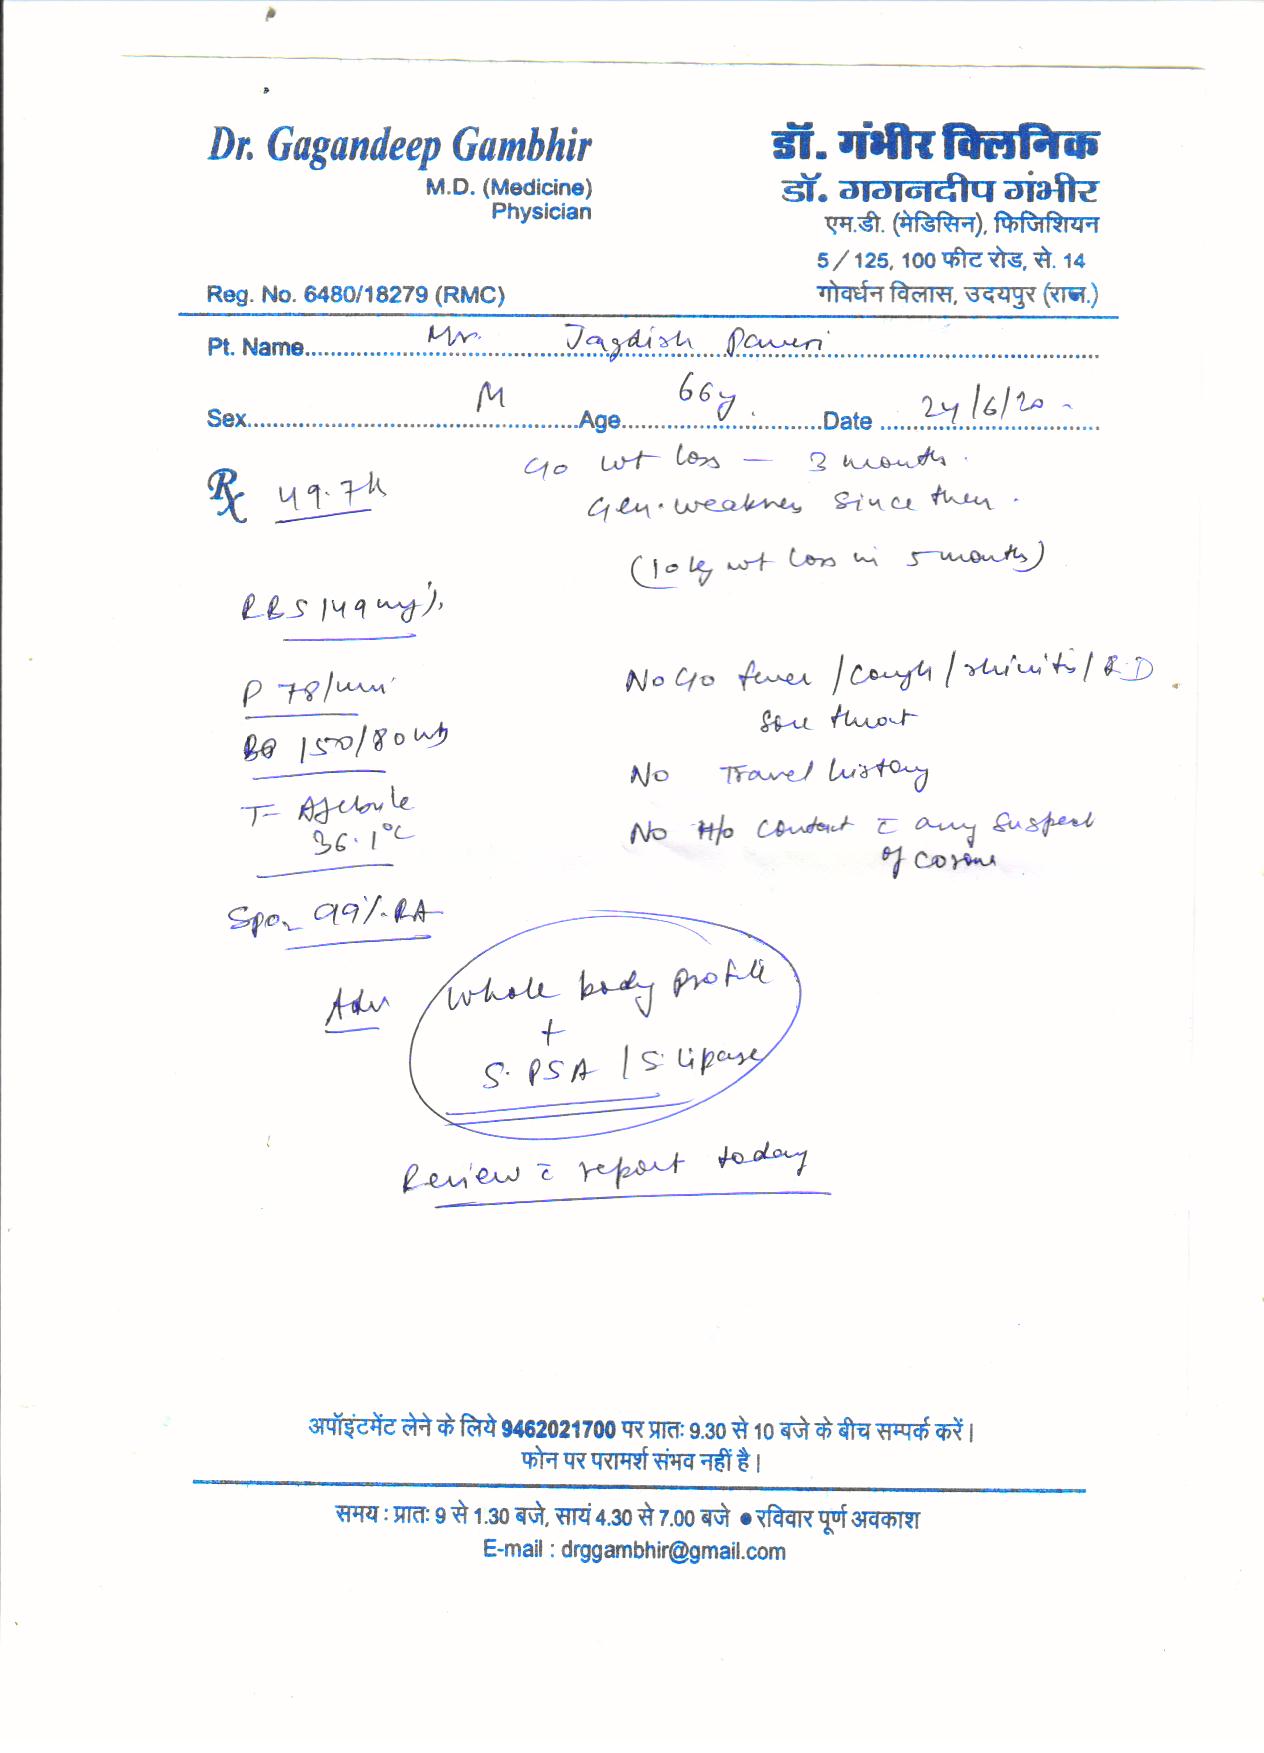 Dr. Gagandeep Gambhir
M.D. (Medicine)
Physician
Reg. No. 6480/18279 (RMC)
डॉ. गंभीर क्लिनिक
डॉ. गगनदीप गंभीर
एम.डी. (मेडिसिन), फिजिशियन
5 / 125, 100 फीट रोड, से. 14
गोवर्धन विलास, उदयपुर (राज.)
Pt. Name Mr. Jagdish
Sex M Age 66y. Date 24/6/20
Rx 49.7k
C/o wt loss – 3 months.
Gen. weakness since then.
(10 kg wt loss in 5 months)
RBS 149 mg%
P 78/min
BP 150/80
T= Afebrile
36.1°C
SpO2 99% RA
No C/o fever / cough / rhinitis / R.D
Sore throat
No Travel history
No H/o contact c̄ any suspect
of corona
Adv Whole body profile
+
S. PSA / S. Lipase
Review c̄ report today
अपॉइंटमेंट लेने के लिये 9462021700 पर प्रातः 9.30 से 10 बजे के बीच सम्पर्क करें।
फोन पर परामर्श संभव नहीं है।
समय : प्रातः 9 से 1.30 बजे, सायं 4.30 से 7.00 बजे ● रविवार पूर्ण अवकाश
E-mail : drggambhir@gmail.com